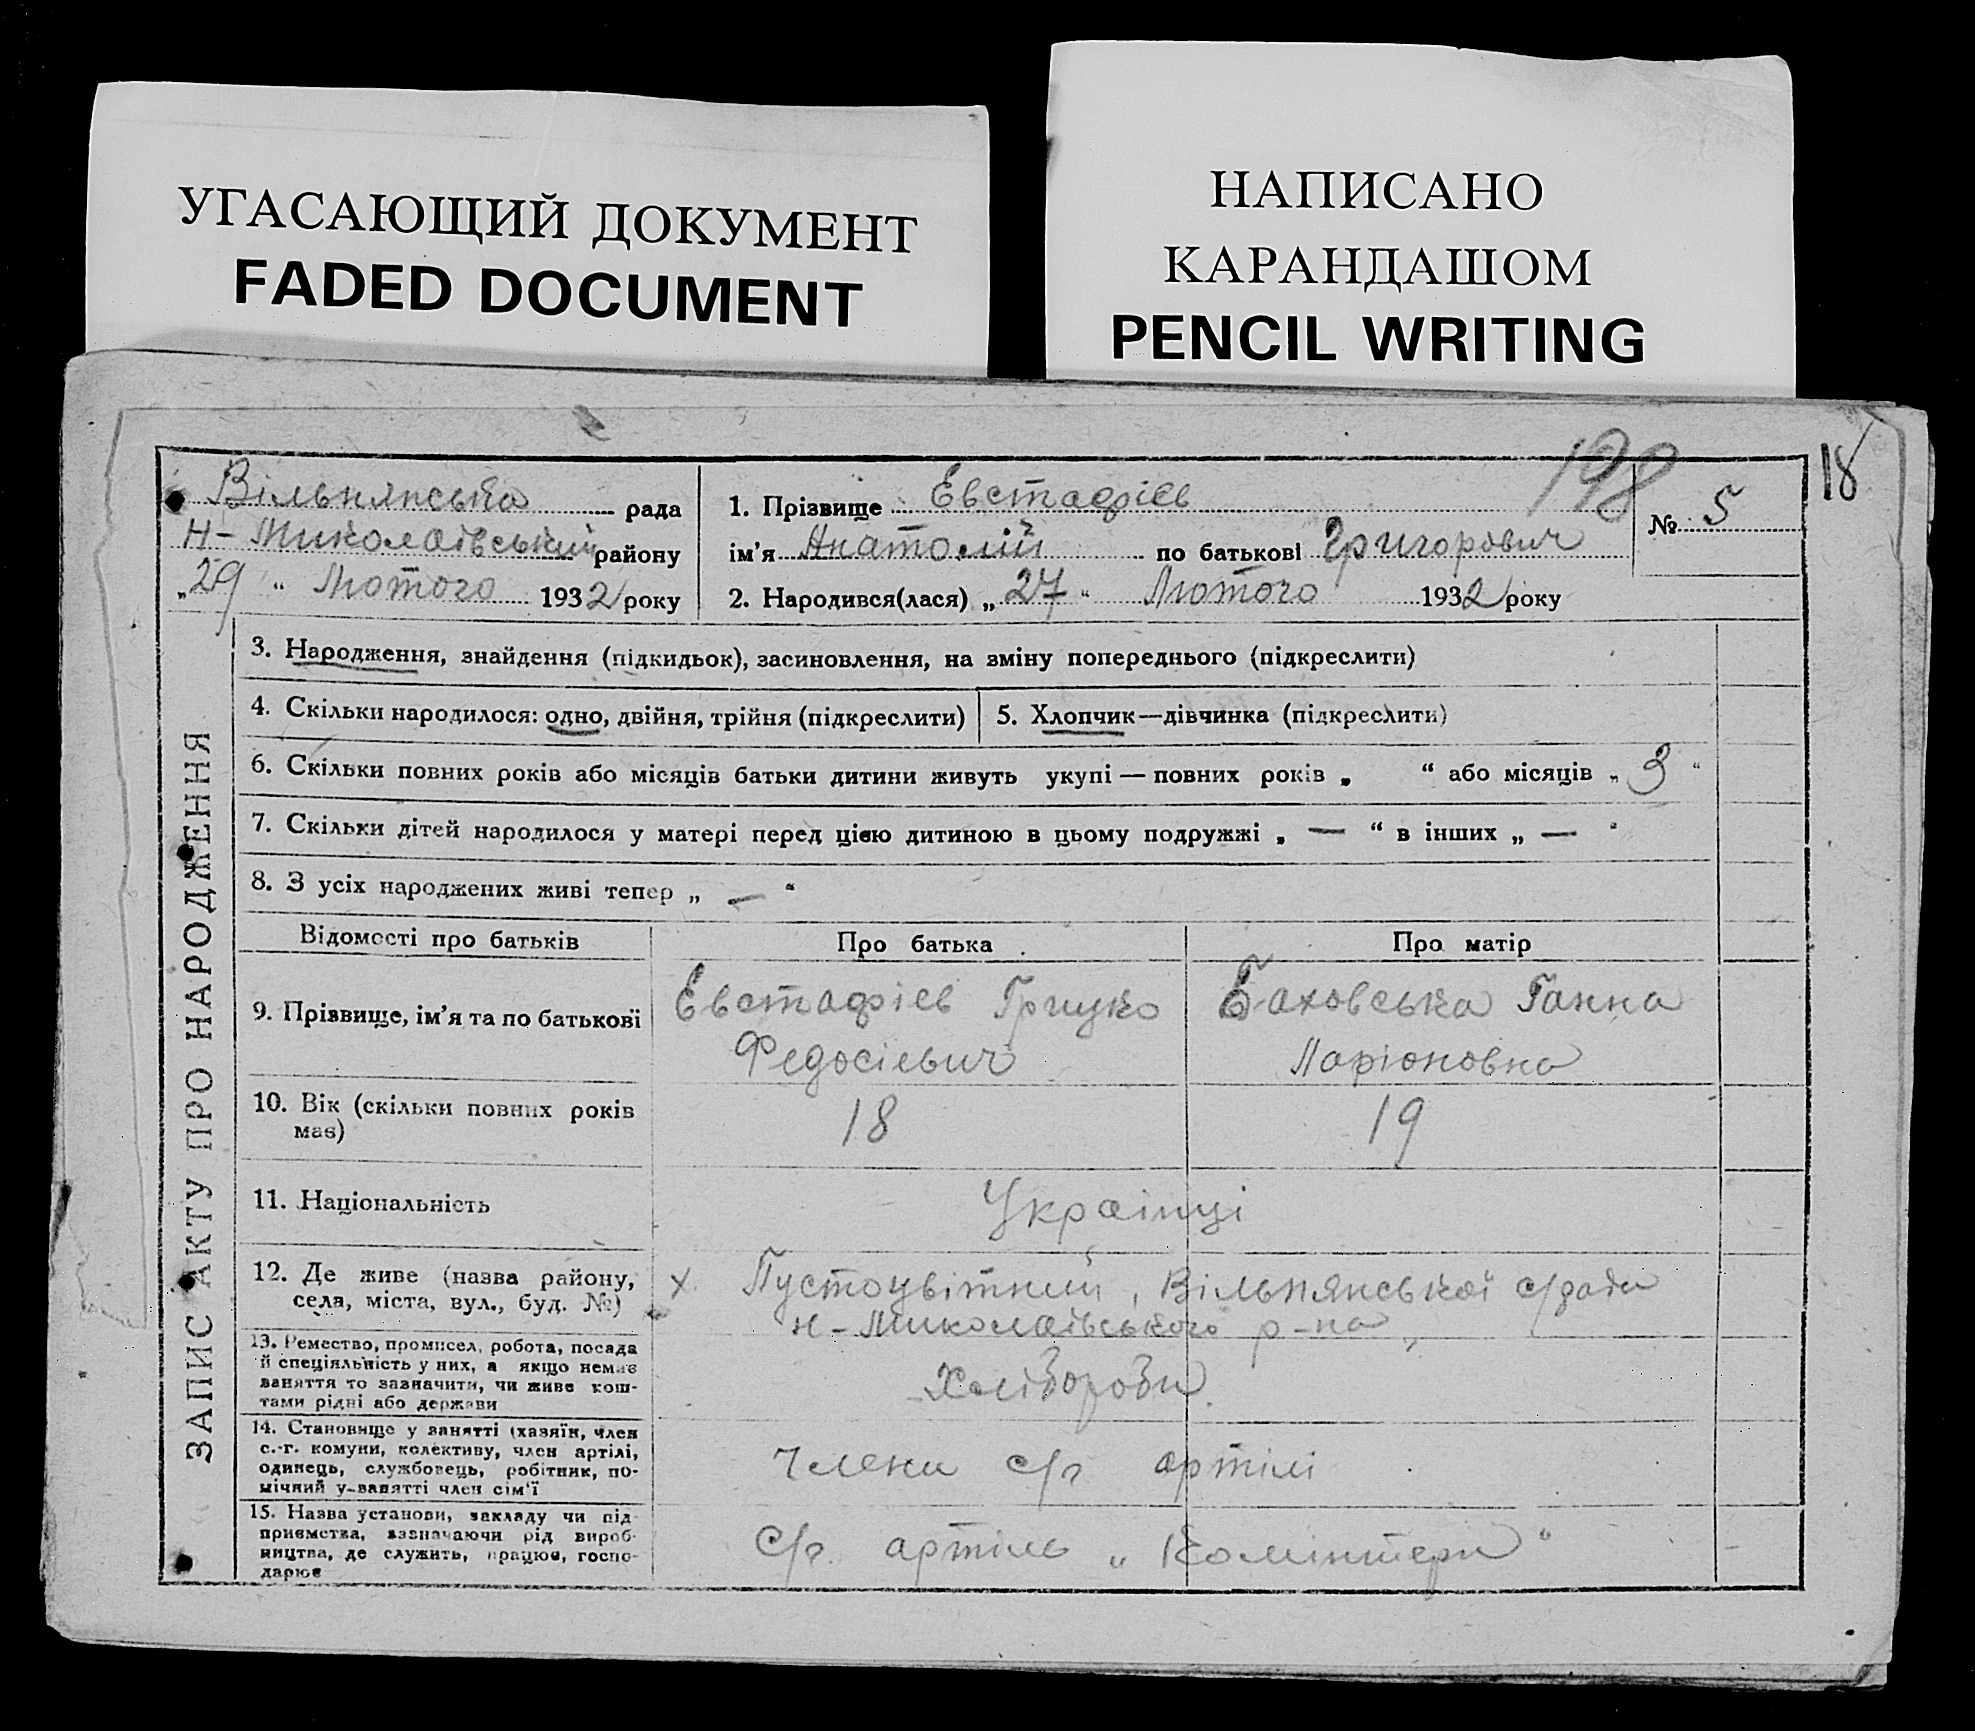 УГАСАЮЩИЙ ДОКУМЕНТ
FADED DOCUMENT
НАПИСАНО
КАРАНДАШОМ
PENCIL WRITING
198
18
Вільнянська рада
Н-Миколаївський району
„29“ Лютого 1932 року
1. Прізвище Евстафієв
ім’я Анатолій по батькові Григорович
2. Народився(лася) „27“ Лютого 1932 року
№ 5
ЗАПИС АКТУ ПРО НАРОДЖЕННЯ
3. Народження, знайдення (підкидьок), засиновлення, на зміну попереднього (підкреслити)
4. Скільки народилося: одно, двійня, трійня (підкреслити)
5. Хлопчик—дівчинка (підкреслити)
6. Скільки повних років або місяців батьки дитини живуть укупі — повних років „ “ або місяців „3“
7. Скільки дітей народилося у матері перед цією дитиною в цьому подружжі „—“ в інших „—“
8. З усіх народжених живі тепер „—“
Відомості про батьків
Про батька
Про матір
9. Прізвище, ім’я та по батькові
Евстафієв Грицко
Федосієвич
Баховська Ганна
Ларіоновна
10. Вік (скільки повних років
має)
18
19
11. Національність
Українці
12. Де живе (назва району,
села, міста, вул., буд. №)
х. Пустоцвітний, Вільнянської с/ради
Н-Миколаївського р-на
13. Ремество, промисел, робота, посада
й спеціяльність у них, а якщо немає
заняття то зазначити, чи живе кош-
тами рідні або держави
Хлібороби
14. Становище у занятті (хазяїн, член
с.-г. комуни, колективу, член артілі,
одинець, службовець, робітник, по-
мічний у занятті член сім’ї
Члени с/г артілі
15. Назва установи, закладу чи під-
приємства, зазначаючи рід вироб-
ництва, де служить, працює, госпо-
дарює
С/г. артіль „Комінтерн“